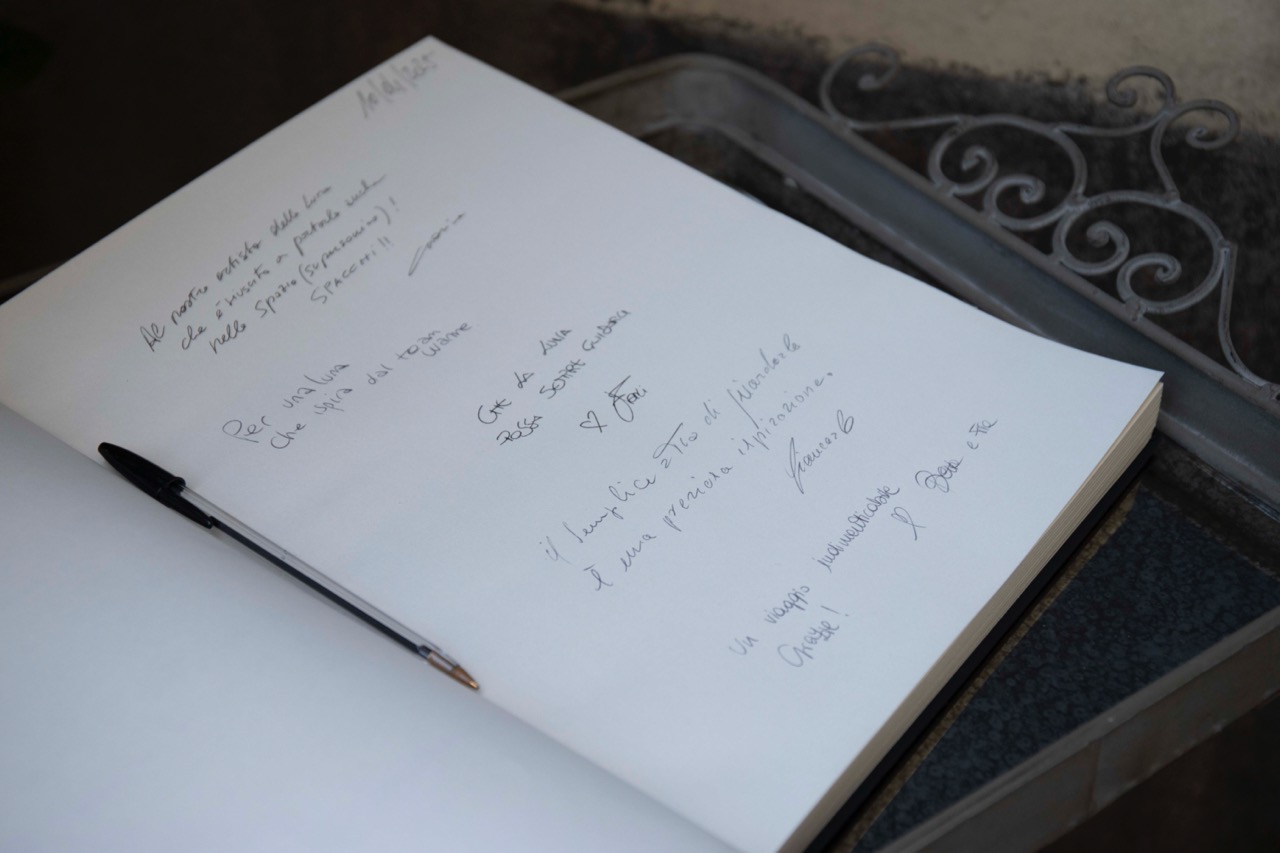 Al nostro artista della luna
che è riuscito a portarla anche
nello Spazio (superuomino)!
SPACCHI!!
Per una luna
che spira dal team
CHE LA LUNA
POSSA SEMPRE GUIDARCI
♡
il semplice atto di guardarla
è una preziosa ispirazione.
Francesco
Un viaggio indimenticabile
Grazie!